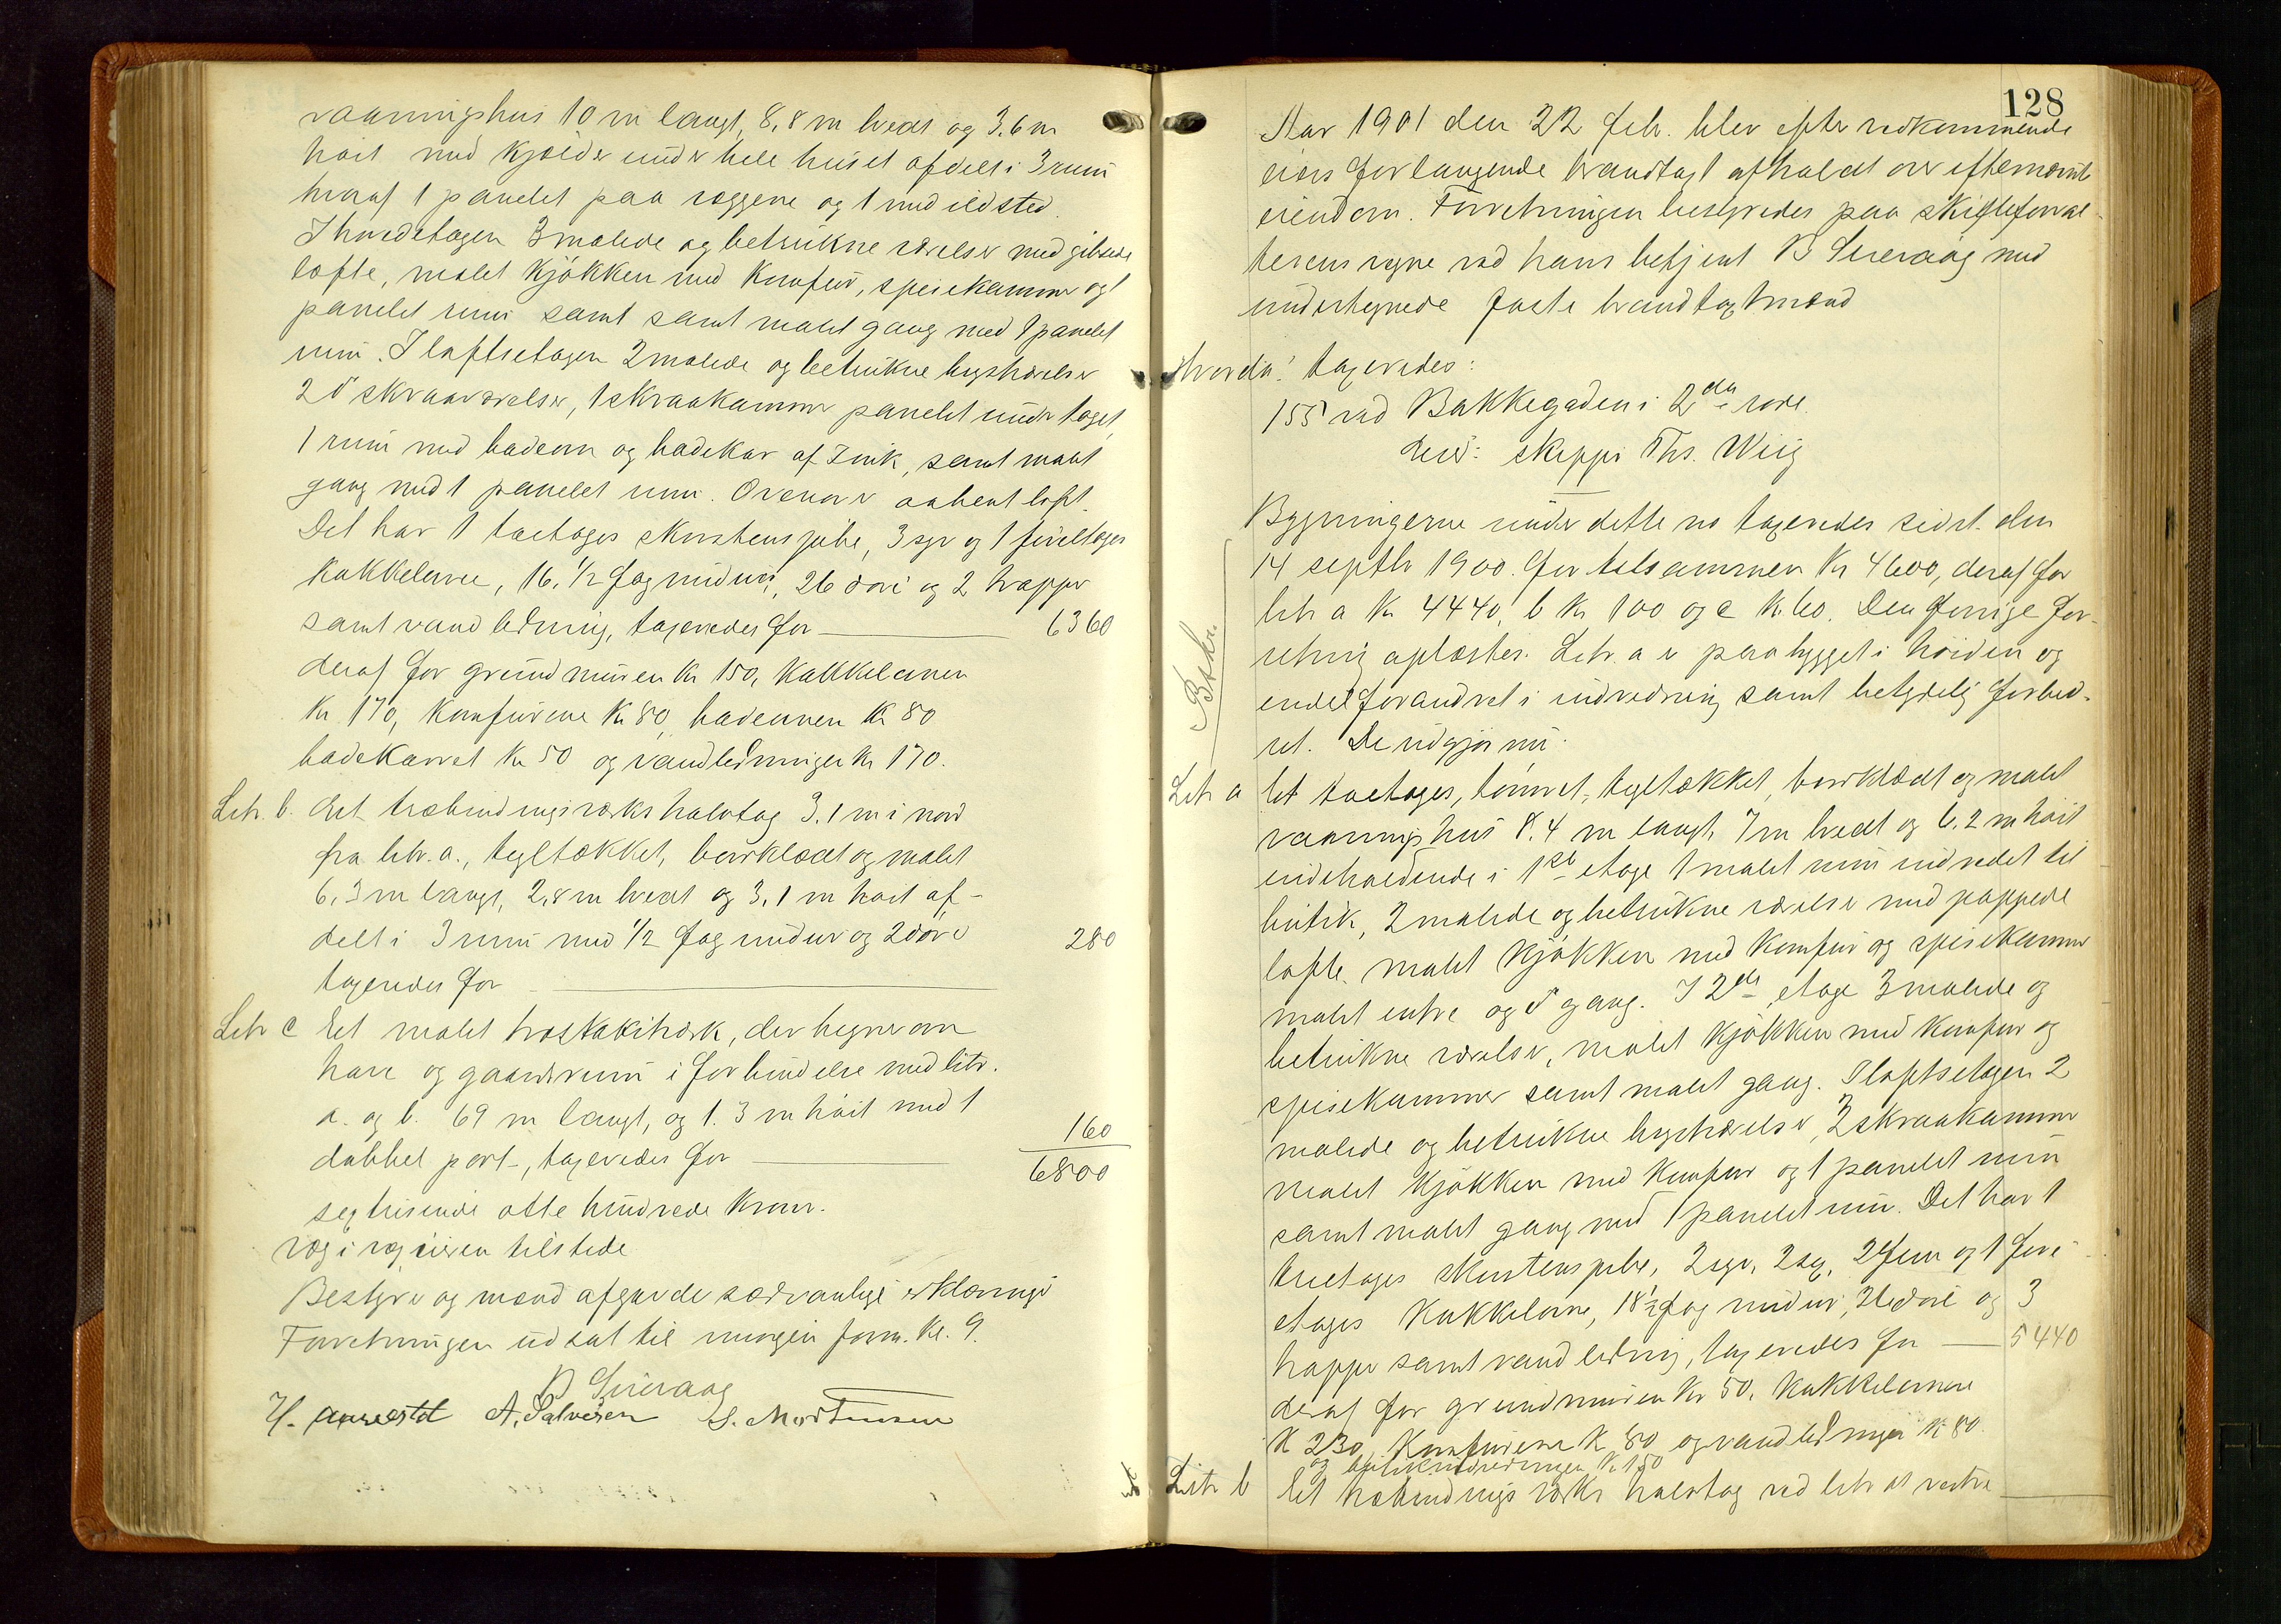 vaaningshus 10 m langt, 8,8 m bredt og 3.6 m
høit med kjælder under hele huset afdelt i 3 rum
hvoraf 1 panelet paa væggene og 1 med ildsted.
I hovedetagen 3 malede og betrukne værelser med gibsede
lofte, malet kjøkken med komfur, spisekammer og 1
panelet rum samt samt malet gang med 1 panelet
rum. I loftsetagen 2 malede og betrukne kvistværelser
2 do skraaværelser, 1 skraakammer panelet under taget,
1 rum med badeovn og badekar af Zink, samt malet
gang med 1 panelet rum. Ovenover aabent loft.
Det har 1 toetages skorstenspibe, 3 sgr og 1 fireetages
kakkelovne, 16 1/2 fag vinduer, 26 døre og 2 trapper
samt vandledning, taxeredes for 6360
deraf for grundmuren Kr 150, Kakkelovnen
Kr 170, Komfurene Kr 80, badeovnen Kr 80
badekarret Kr 50 og vandledningen Kr 170.
Litr. b. Et træbindingsværks halvtag 3.1 m i nord
fra litr. a., tegltækket, bordklædt og malet
6,3 m langt, 2,8 m bredt og 3,1 m høit af-
delt i 3 rum med 1/2 fag vindu og 2 døre
taxeredes for 280
Litr c Et malet træstakitværk, der hegner om
have og gaardsrum i forbindelse med litr.
a. og b. 69 m langt, og 1.3 m høit med 1
dobbel port, taxeredes for 160
6800
sextusende otte hundrede Kroner.
Væg i væg eieren tilstede
Bestyrer og mænd afgavde sædvanlige erklæringer
Forretningen udsat til morgen form. Kl. 9.
B Sirevaag
A. Salvesen S. Mortensen
128
Aar 1901 den 22 feb. blev efter vedkommende
eiers forlangende brandtaxt afholdt over efternævnte
eiendom. Forretningen bestyredes paa skifteforval-
terens vegne ved hans betjent B Sirevaag med
undertegnede faste brandtaxtmænd
Hvorda! taxeredes:
155 ved Bakkegaden i 2den rode.
eier: skipper Ths. Wiig
Bygningerne under dette no taxeredes sidst den
14 septbr 1900 for tilsammen Kr 4600, deraf for
litr a Kr 4440, b Kr 100 og c Kr 60. Den forrige for-
retning oplæstes. Litr. a er paabygget i høiden og
endel forandret i indredning samt betydelig forbed-
ret. De udgjør nu:
Litr a Et toetages, tømret, tegltækket, bordklædt og malet
vaaningshus 8.4 m langt, 7 m bredt og 6.2 m høit
indeholdende i 1ste etage 1 malet rum indredet til
butik, 2 malede og betrukne værelser med pappede
lofte, malet kjøkken med komfur og spisekammer
malet entre og do gang. I 2den etage 3 malede og
betrukne værelser, malet kjøkken med komfur og
spisekammer samt malet gang. I loftsetagen 2
malede og betrukne kvistværelser, 2 skraakammer
malet kjøkken med komfur og 1 panelet rum
samt malet gang med 1 panelet rum. Det har 1
treetages skorstenspibe, 2 sgr, 2 sex, 2 fem og 1 fire
etages Kakkelovne, 18 1/2 fag vinduer, døre og 3
trapper samt vandledning, taxeredes for 5440
deraf for grundmuren Kr 50, Kakkelovnene
Kr 230, Komfurene Kr 80 og vandledningen Kr 80
og butikindredningen Kr 150
Litr b Et træbindingsværks halvtag ved litr a's vestre